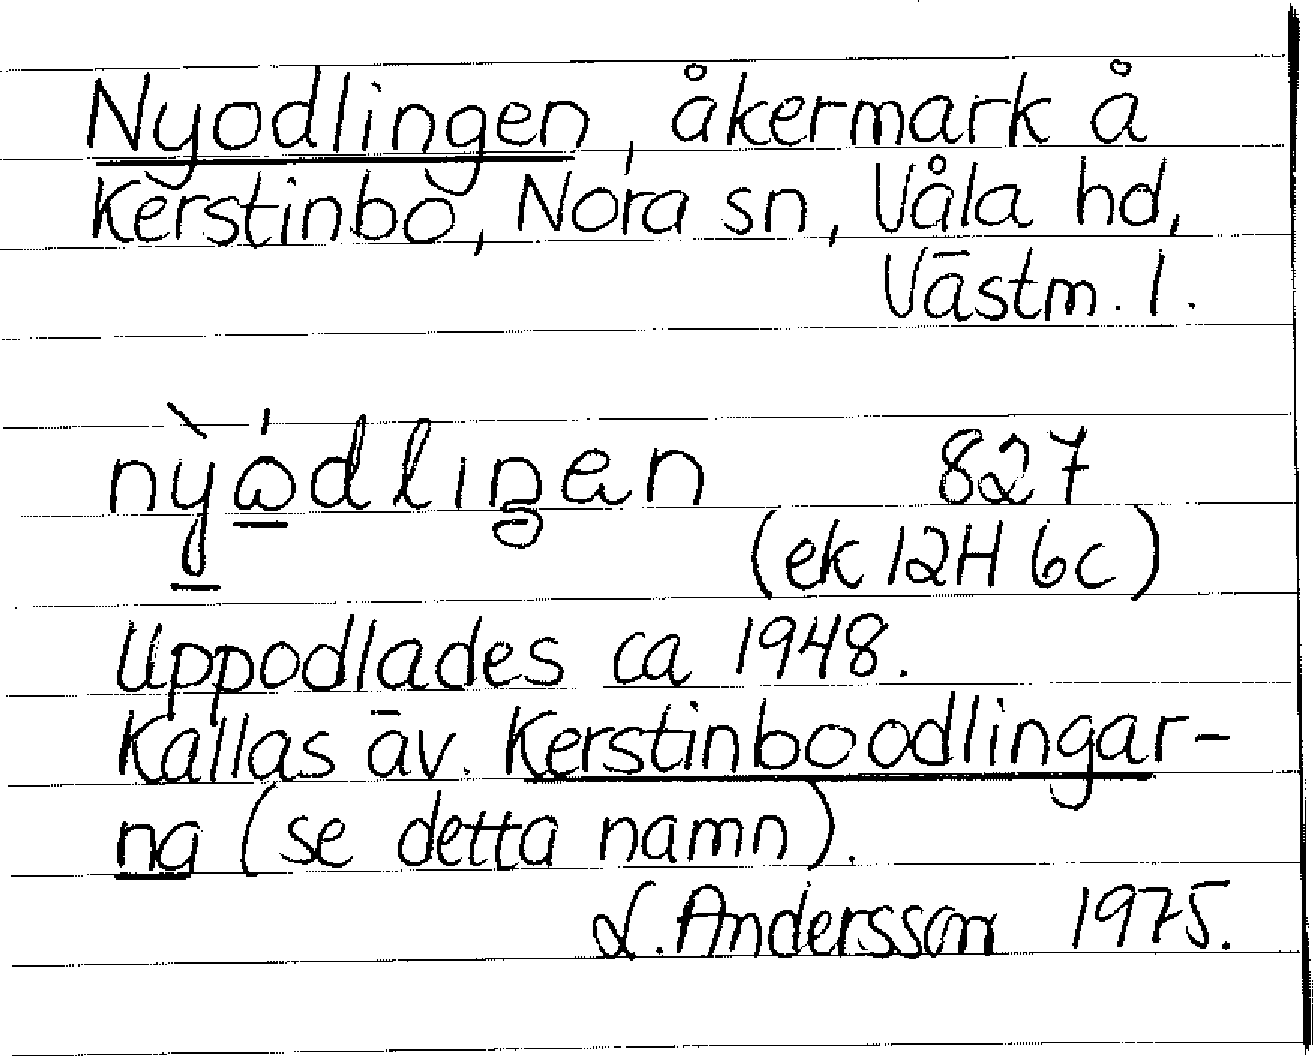 Nyodlingen, åkermark å
Kerstinbo, Nora sn, Våla hd,
Västm. l.
827
(ek 12H 6c)
Uppodlades ca 1948.
Kallas äv. Kerstinboodlingar-
na (se detta namn).
L. Andersson 1975.